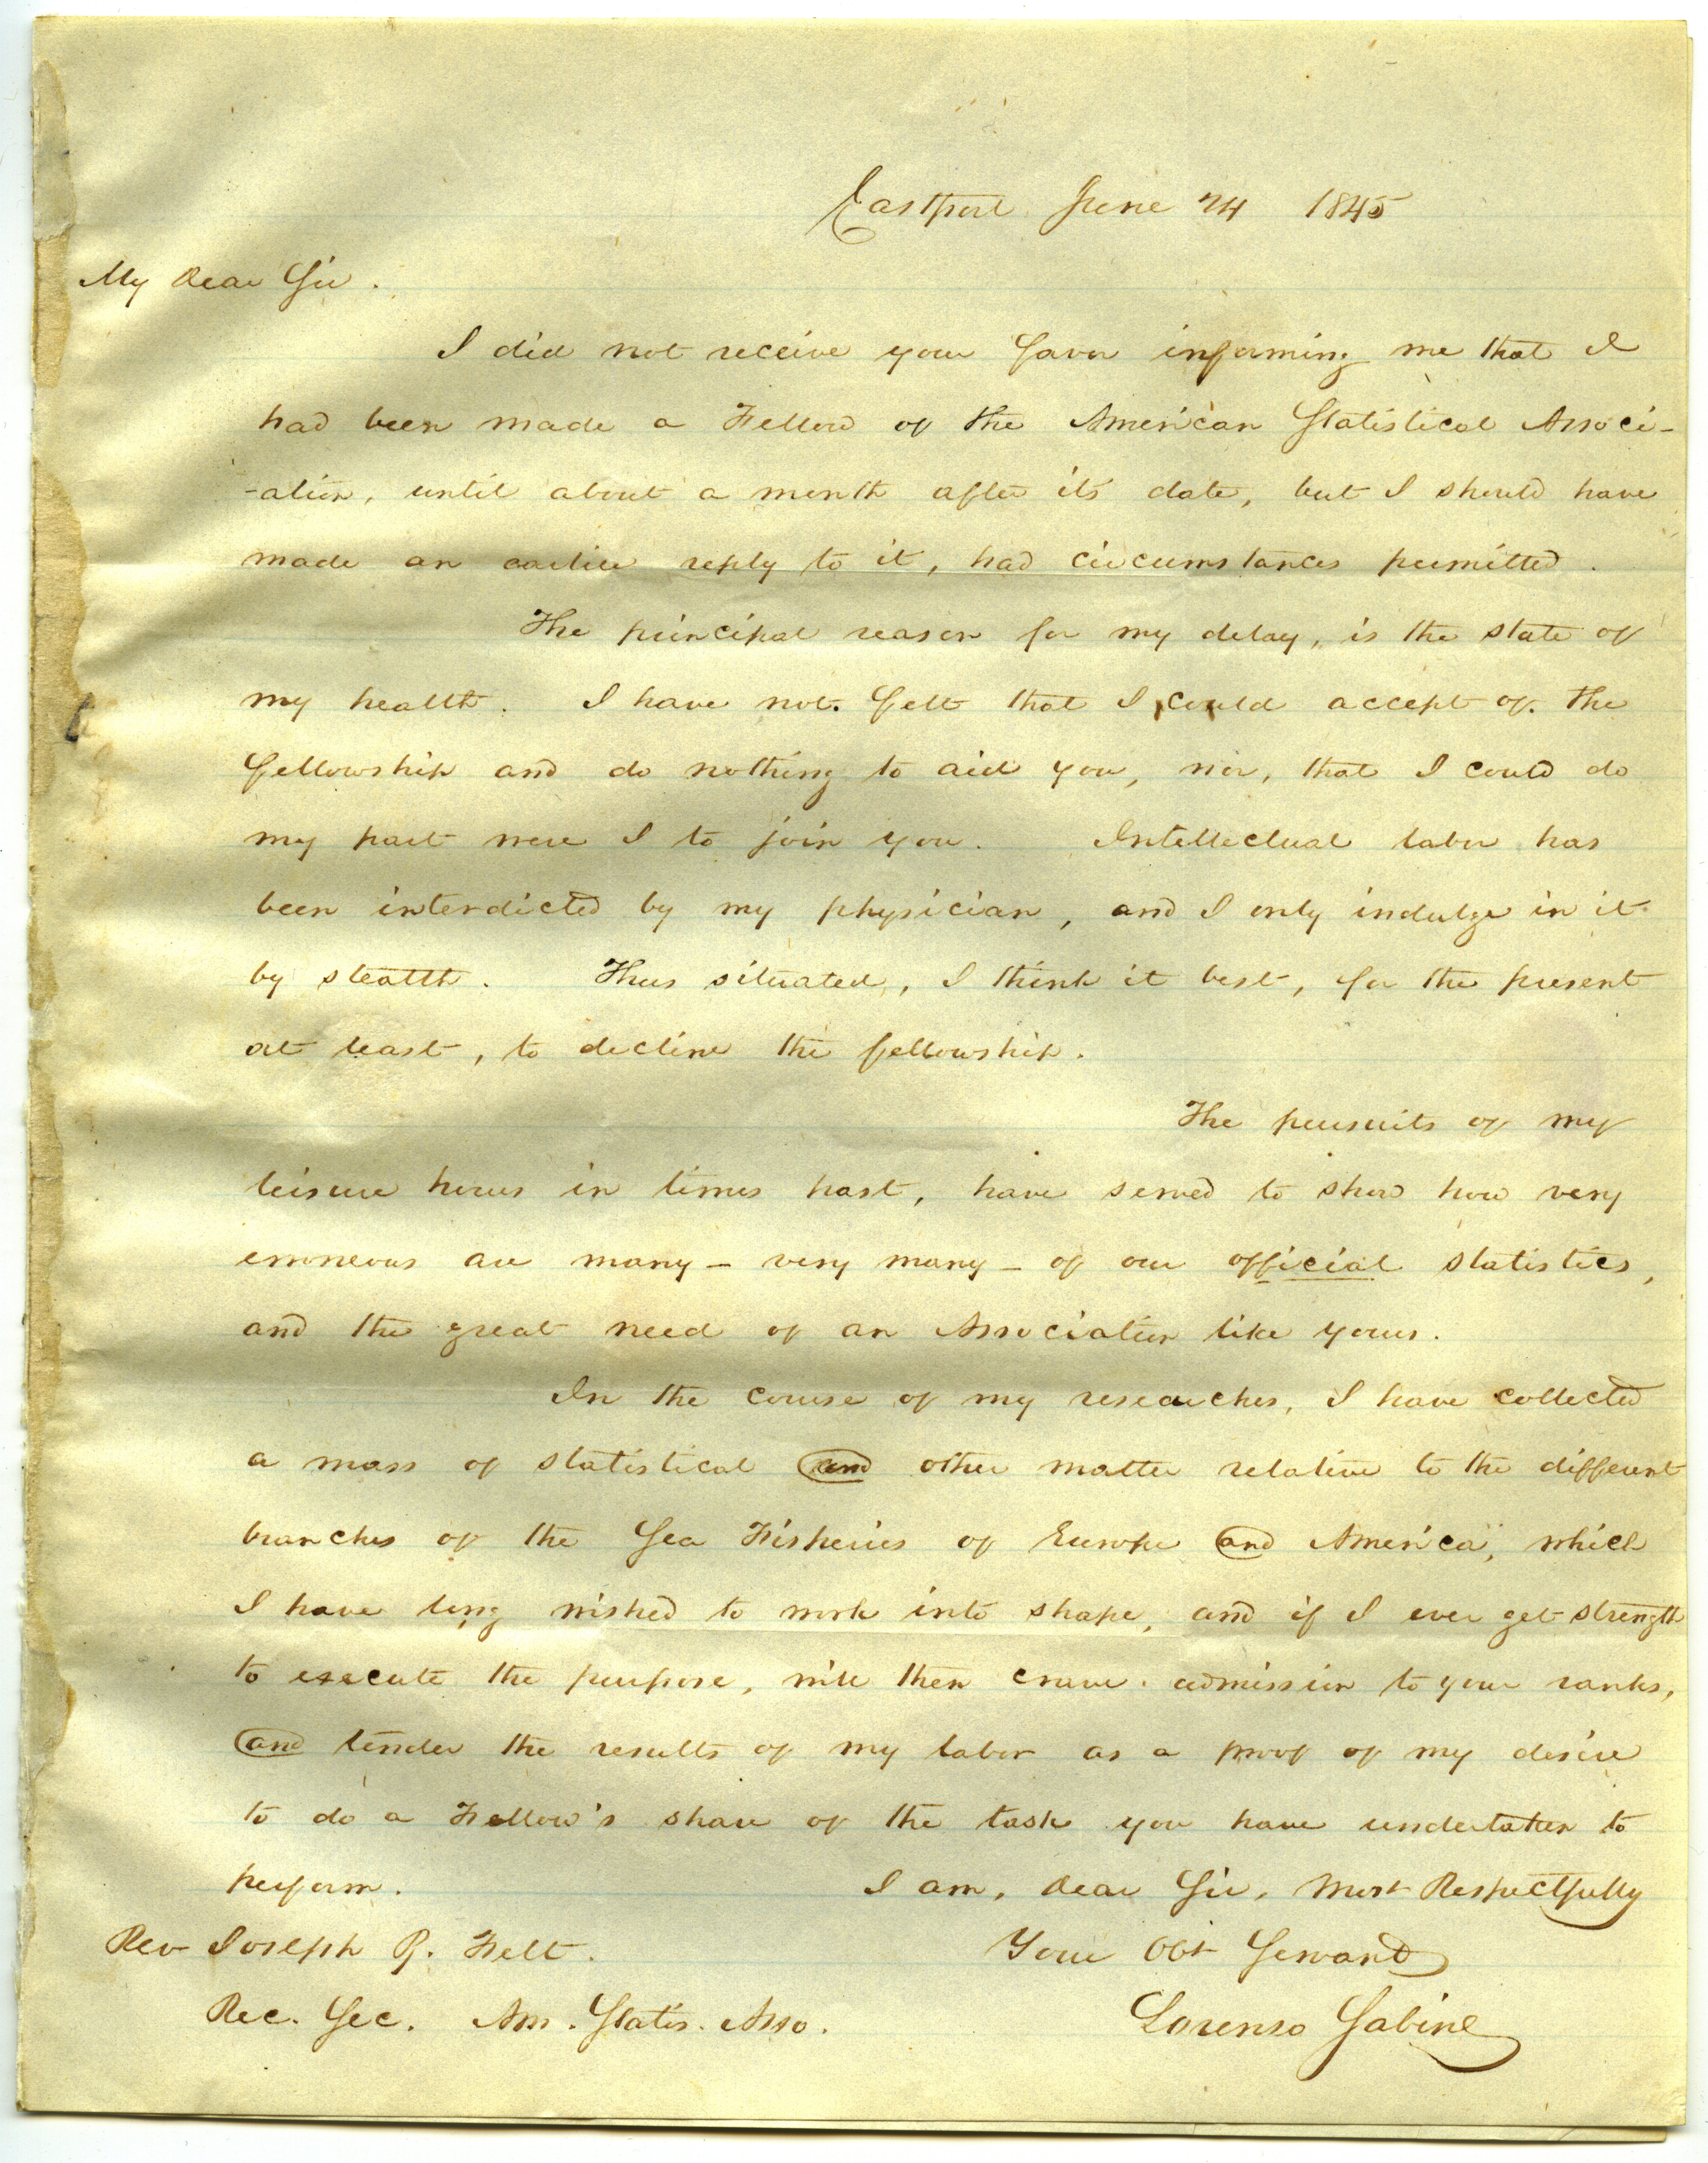 Eastport June 24 1845
My Dear Sir.
I did not receive your favor informing me that I
had been made a Fellow of the American Statistical Associ-
-ation, until about a month after its date, but I should have
made an earlier reply to it, had circumstances permitted.
The principal reason for my delay, is the state of
my health. I have not felt that I could accept of the
fellowship and do nothing to aid you, nor, that I could do
my part were I to join you. Intellectual labor has
been interdicted by my physician, and I only indulge in it
by stealth. Thus situated, I think it best, for the present
at least, to decline the fellowship.
The pursuits of my
leisure hours in times past, have served to show how very
erroneous are many - very many - of our official statistics,
and the great need of an Association like yours.
In the course of my researches, I have collected
a mass of statistical and other matter relative to the different
branches of the Sea Fisheries of Europe and America, which
I have long wished to work into shape, and if I ever get strength
to execute the purpose, will then crave admission to your ranks,
and tender the results of my labor as a proof of my desire
to do a Fellow's share of the task you have undertaken to
perform. I am, Dear Sir, Most Respectfully
Rev Joseph B. Felt. Your Obt Servant
Rec. Sec. Am. Statis. Asso. Lorenzo Sabine